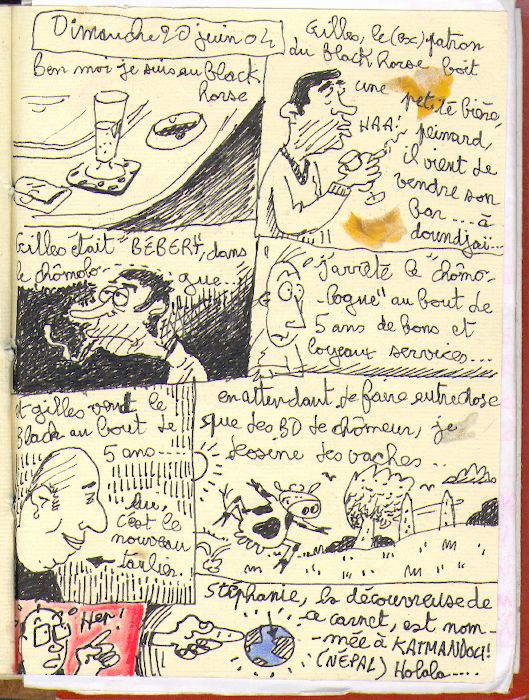 Dimanche 20 juin 04
Ben moi je suis au Black
Horse
Gilles, le (ex) patron
du Black Horse boit
une
petite bière,
HAA!
peinard
il vient de
vendre son
bar.... à
doundjai...
Gilles était "BÉBERT", dans
le chômolo-
gue...
j'arrête le "chômo-
-logue" au bout de
5 ans de bons et
loyeaux services...
et gilles vend le
Black au bout de
5 ans...
lui,
c'est le
nouveau
taulier.
en attendant de faire autre chose
que des BD de chômeur, je
dessine des vaches...
Hep!
Stéphanie, la découvreuse de
ce carnet, est nom-
-mée à KATMANDOU!
(NÉPAL) Holala....